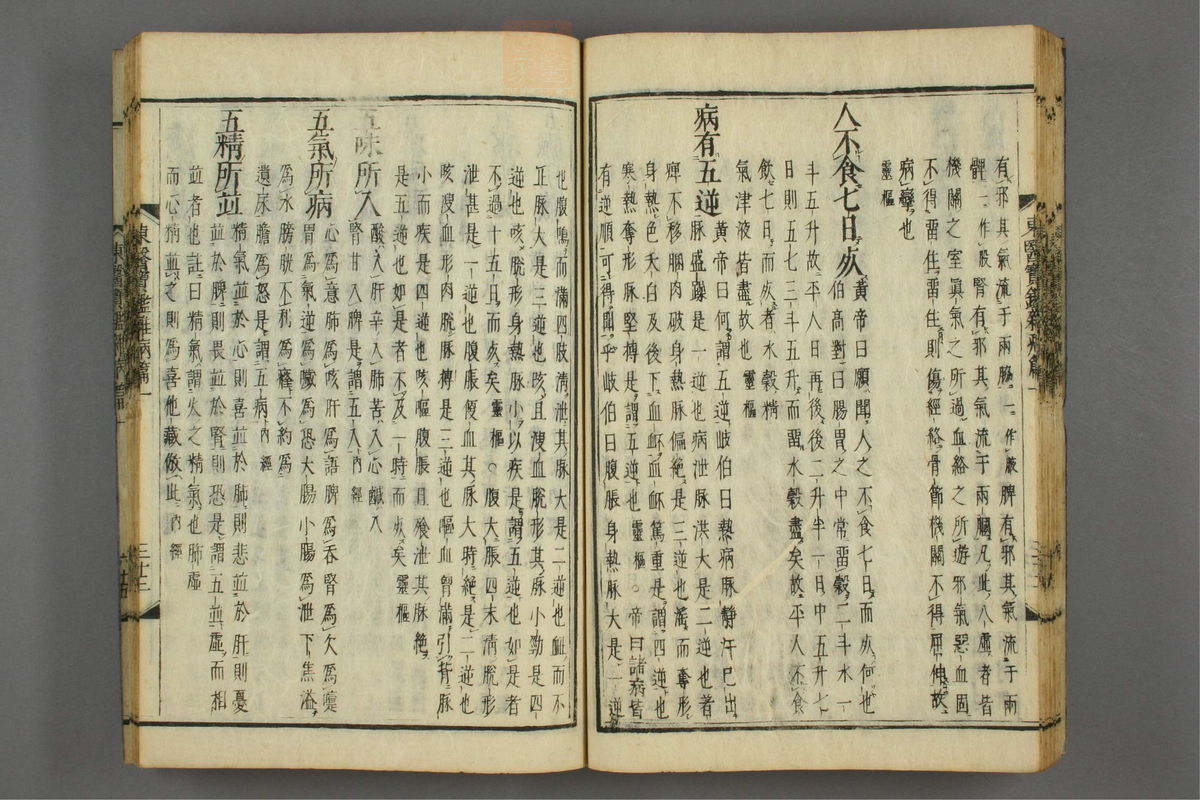 有邪其氣流于兩腋一作厥脾有邪其氣流于兩
髀一作股腎有邪其氣流于兩膕凡此八虛者皆
機關之室眞氣之所過血絡之所遊邪氣惡血固
不得留住留住則傷經絡骨節機關不得屈伸故
病攣也
靈樞
人不食七日死
黃帝曰願聞人之不食七日而死何也
伯高對曰腸胃之中常留穀二斗水一
斗五升故平人日再後後二升半一日中五升七
日則五七三斗五升而留水穀盡矣故平人不食
飲七日而死者水穀精
氣津液皆盡故也 靈樞
病有五逆
黃帝曰何謂五逆歧伯曰熱病脉靜汗已出
脉盛躁是一逆也病泄脉洪大是二逆也著
痺不移䐃肉破身熱脉偏絶是三逆也淫而奪形
身熱色夭白及後下血衃血衃篤重是謂四逆也
寒熱奪形脉堅搏是謂五逆也靈樞○帝曰諸病皆
有逆順可得聞乎歧伯曰腹脹身熱脉大是一逆
也腹鳴而滿四肢淸泄其脉大是二逆也衄而不
止脉大是三逆也咳且溲血脫形其脉小勁是四
逆也咳脫形身熱脉小以疾是謂五逆也如是者
不過十五日而死矣靈樞○腹大脹四末淸脫形
泄甚是一逆也腹脹便血其脉大時絶是二逆也
咳溲血形肉脫脉搏是三逆也嘔血胷滿引背脉
小而疾是四逆也咳嘔腹脹且飱泄其脉絶
是五逆也如是者不及一時而死矣靈樞
五味所入
酸入肝辛入肺苦入心鹹入
腎甘入脾是謂五入內經
五氣所病
心爲噫肺爲咳肝爲語脾爲呑腎爲欠爲嚔
胃爲氣逆爲噦爲恐大腸小腸爲泄下焦溢
爲水膀胱不利爲癃不約爲
遺尿膽爲怒是謂五病內經
五精所並
精氣並於心則喜並於肺則悲並於肝則憂
並於脾則畏並於腎則恐是謂五並虛而相
並者也註曰精氣謂火之精氣也肺虛
而心精並之則爲喜他藏倣此內經
東醫寶鑑雜病篇一
三十三